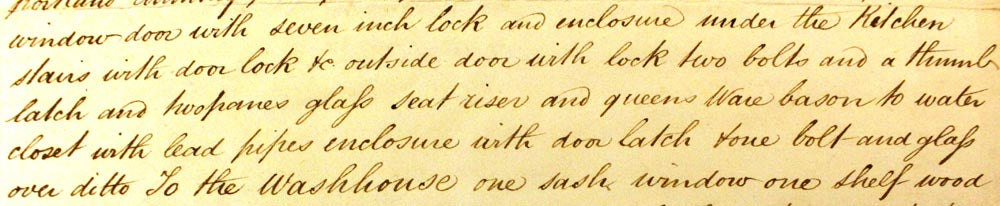 window door with seven inch lock and enclosure under the Kitchen
stairs with door lock &c outside door with lock two bolts and a thumb
latch and two panes glaſs seat riser and queens Ware bason to water
closet with lead pipes enclosure with door latch & one bolt and glaſs
over ditto To the Washhouse one sash window one shelf wood